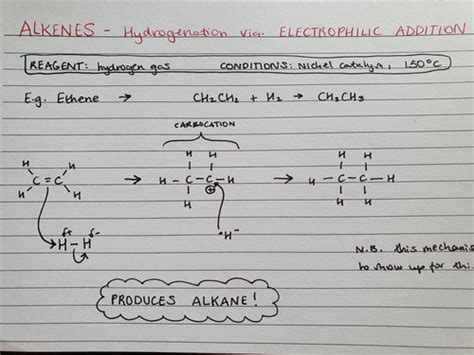 ALKENES - Hydrogenation via. ELECTROPHILIC ADDITION
REAGENT: hydrogen gas CONDITIONS: Nickel catalyst, 150°C
E.g. Ethene → CH₂CH₂ + H₂ → CH₃CH₃
CARBOCATION
H H H H H H
C=C → H-C-C-H → H-C-C-H
H H H ⊕ H H
δ+ δ-
H-H :H⁻
N.B. this mechanis
to show up for thi
PRODUCES ALKANE!